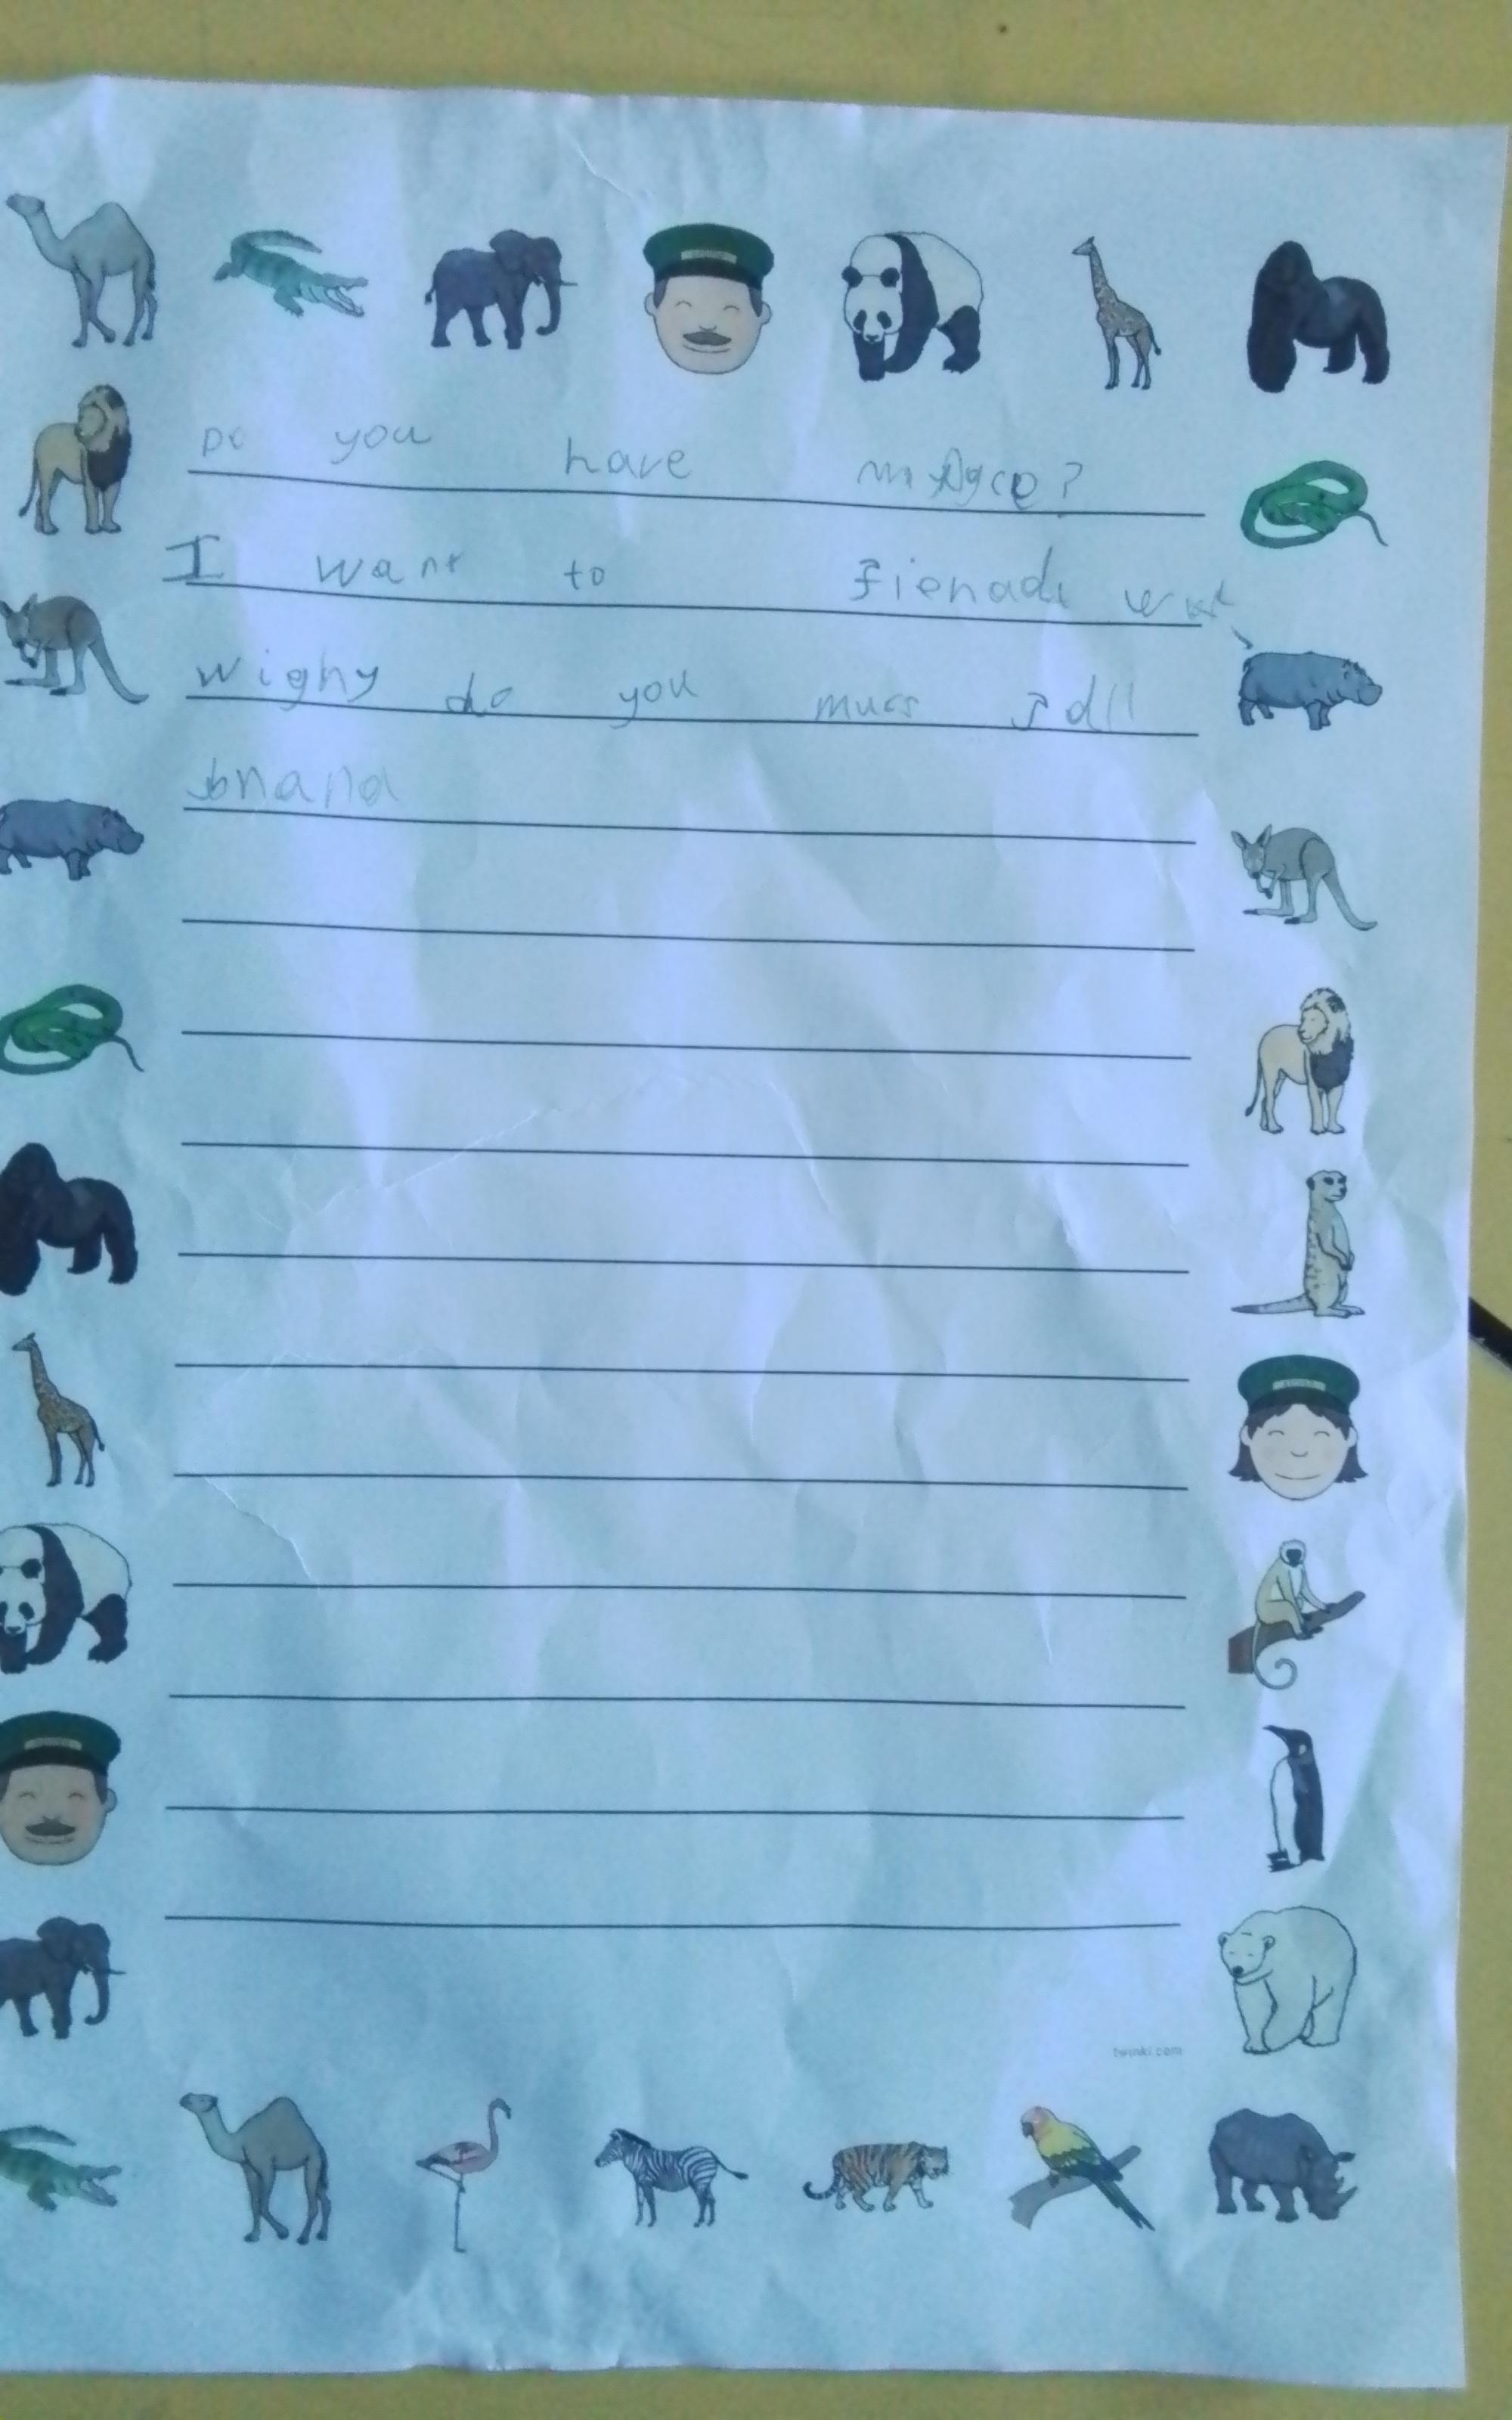 Do you have
I want to fienadi
wighy do you mucs
bnana
twinkl.com